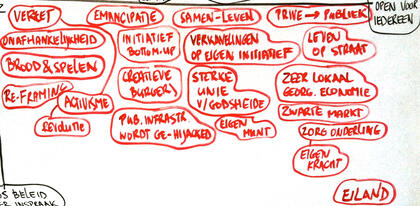 VERZET
ONAFHANKELIJKHEID
BROOD & SPELEN
RE-FRAMING
ACTIVISME
REVOLUTIE
EMANCIPATIE
INITIATIEF
BOTTOM-UP
CREATIEVE
BURGERS
PUB. INFRASTR.
WORDT GE-HIJACKED
SAMEN-LEVEN
VERKAVELINGEN
OP EIGEN INITIATIEF
STERKE
UNIE
V/GODSHEIDE
EIGEN
MUNT
PRIVE → PUBLIEK
LEVEN
OP STRAAT
ZEER LOKAAL
GEORG. ECONOMIE
ZWARTE MARKT
ZORG ONDERLING
EIGEN
KRACHT
EILAND
OPEN VOOR
IEDEREEN
OS BELEID
ER INSPRAAK